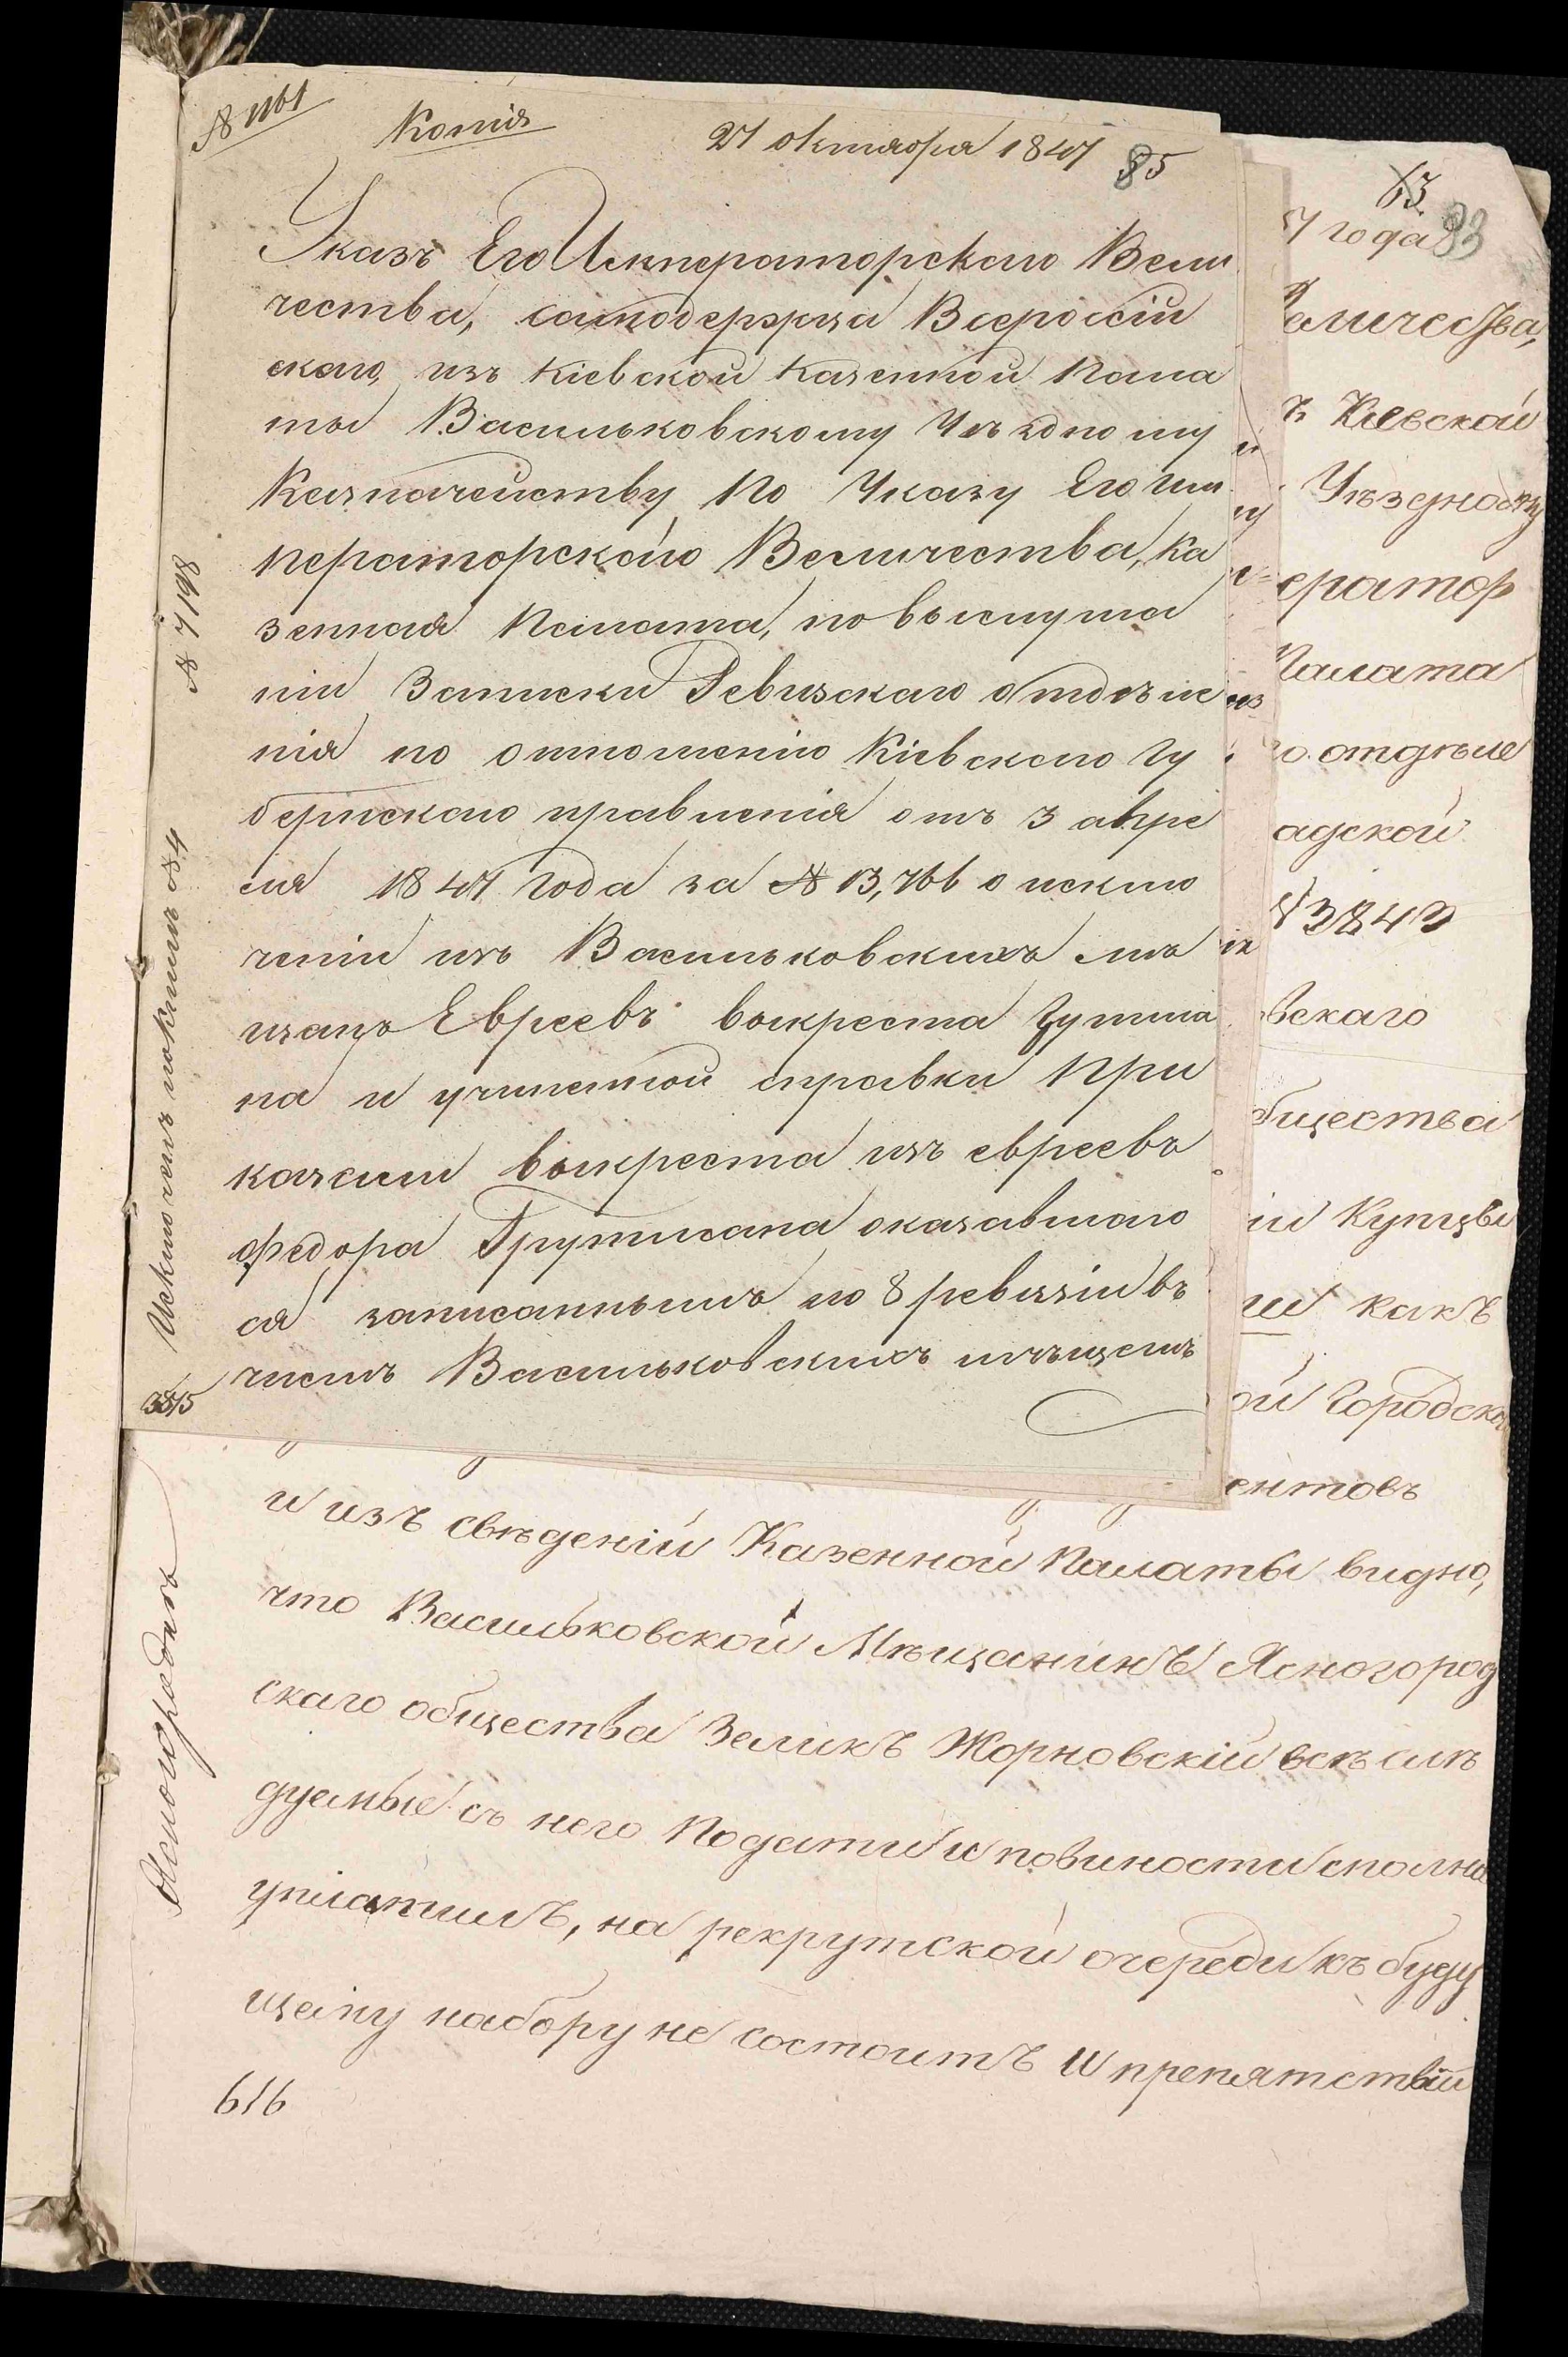 № 1161
Копія
27 октября 1847
85
Указъ Его Императорскаго Вели
чества, самодержца Всероссій
скаго, изъ Кіевской Казенной Пала
ты Васильковскому Уѣздному
Казначейству По Указу Его Им
ператорскаго Величества, Ка
зенная Палата, по выслуша
ніи Записки Ревизскаго отдѣле
нія по отношенію Кіевскаго Гу
бернскаго правленія отъ 3 апре
ля 1847 года за № 13,766 о исклю
ченіи изъ Васильковскихъ мѣ
щанъ Евреевъ выкреста
на и учиненной справки При
казали выкреста изъ евреевъ
Федора Грутмана оказавшаго
ся записаннымъ по 8 ревизіи въ
числѣ Васильковскихъ мѣщанъ
№ 7198
Исключенъ
3875
63
93
7 года
еличества,
ъ Кіевской
Уѣздному
ератор
Палата
о отдѣле
адской
№ 3843
вскаго
бщества
іи Купцы
ши какъ
ой Городской
ентовъ
и изъ свѣденій Казенной Палаты видно,
что Васильковской Мѣщанинъ Ясногород
скаго общества Зеликъ Жорновскій всѣ слѣ
дуемые съ него Подати и повиности сполна
уплатилъ, на рекрутской очереди къ буду
щему набору не состоитъ и препятствій
616
Ясногородкѣ